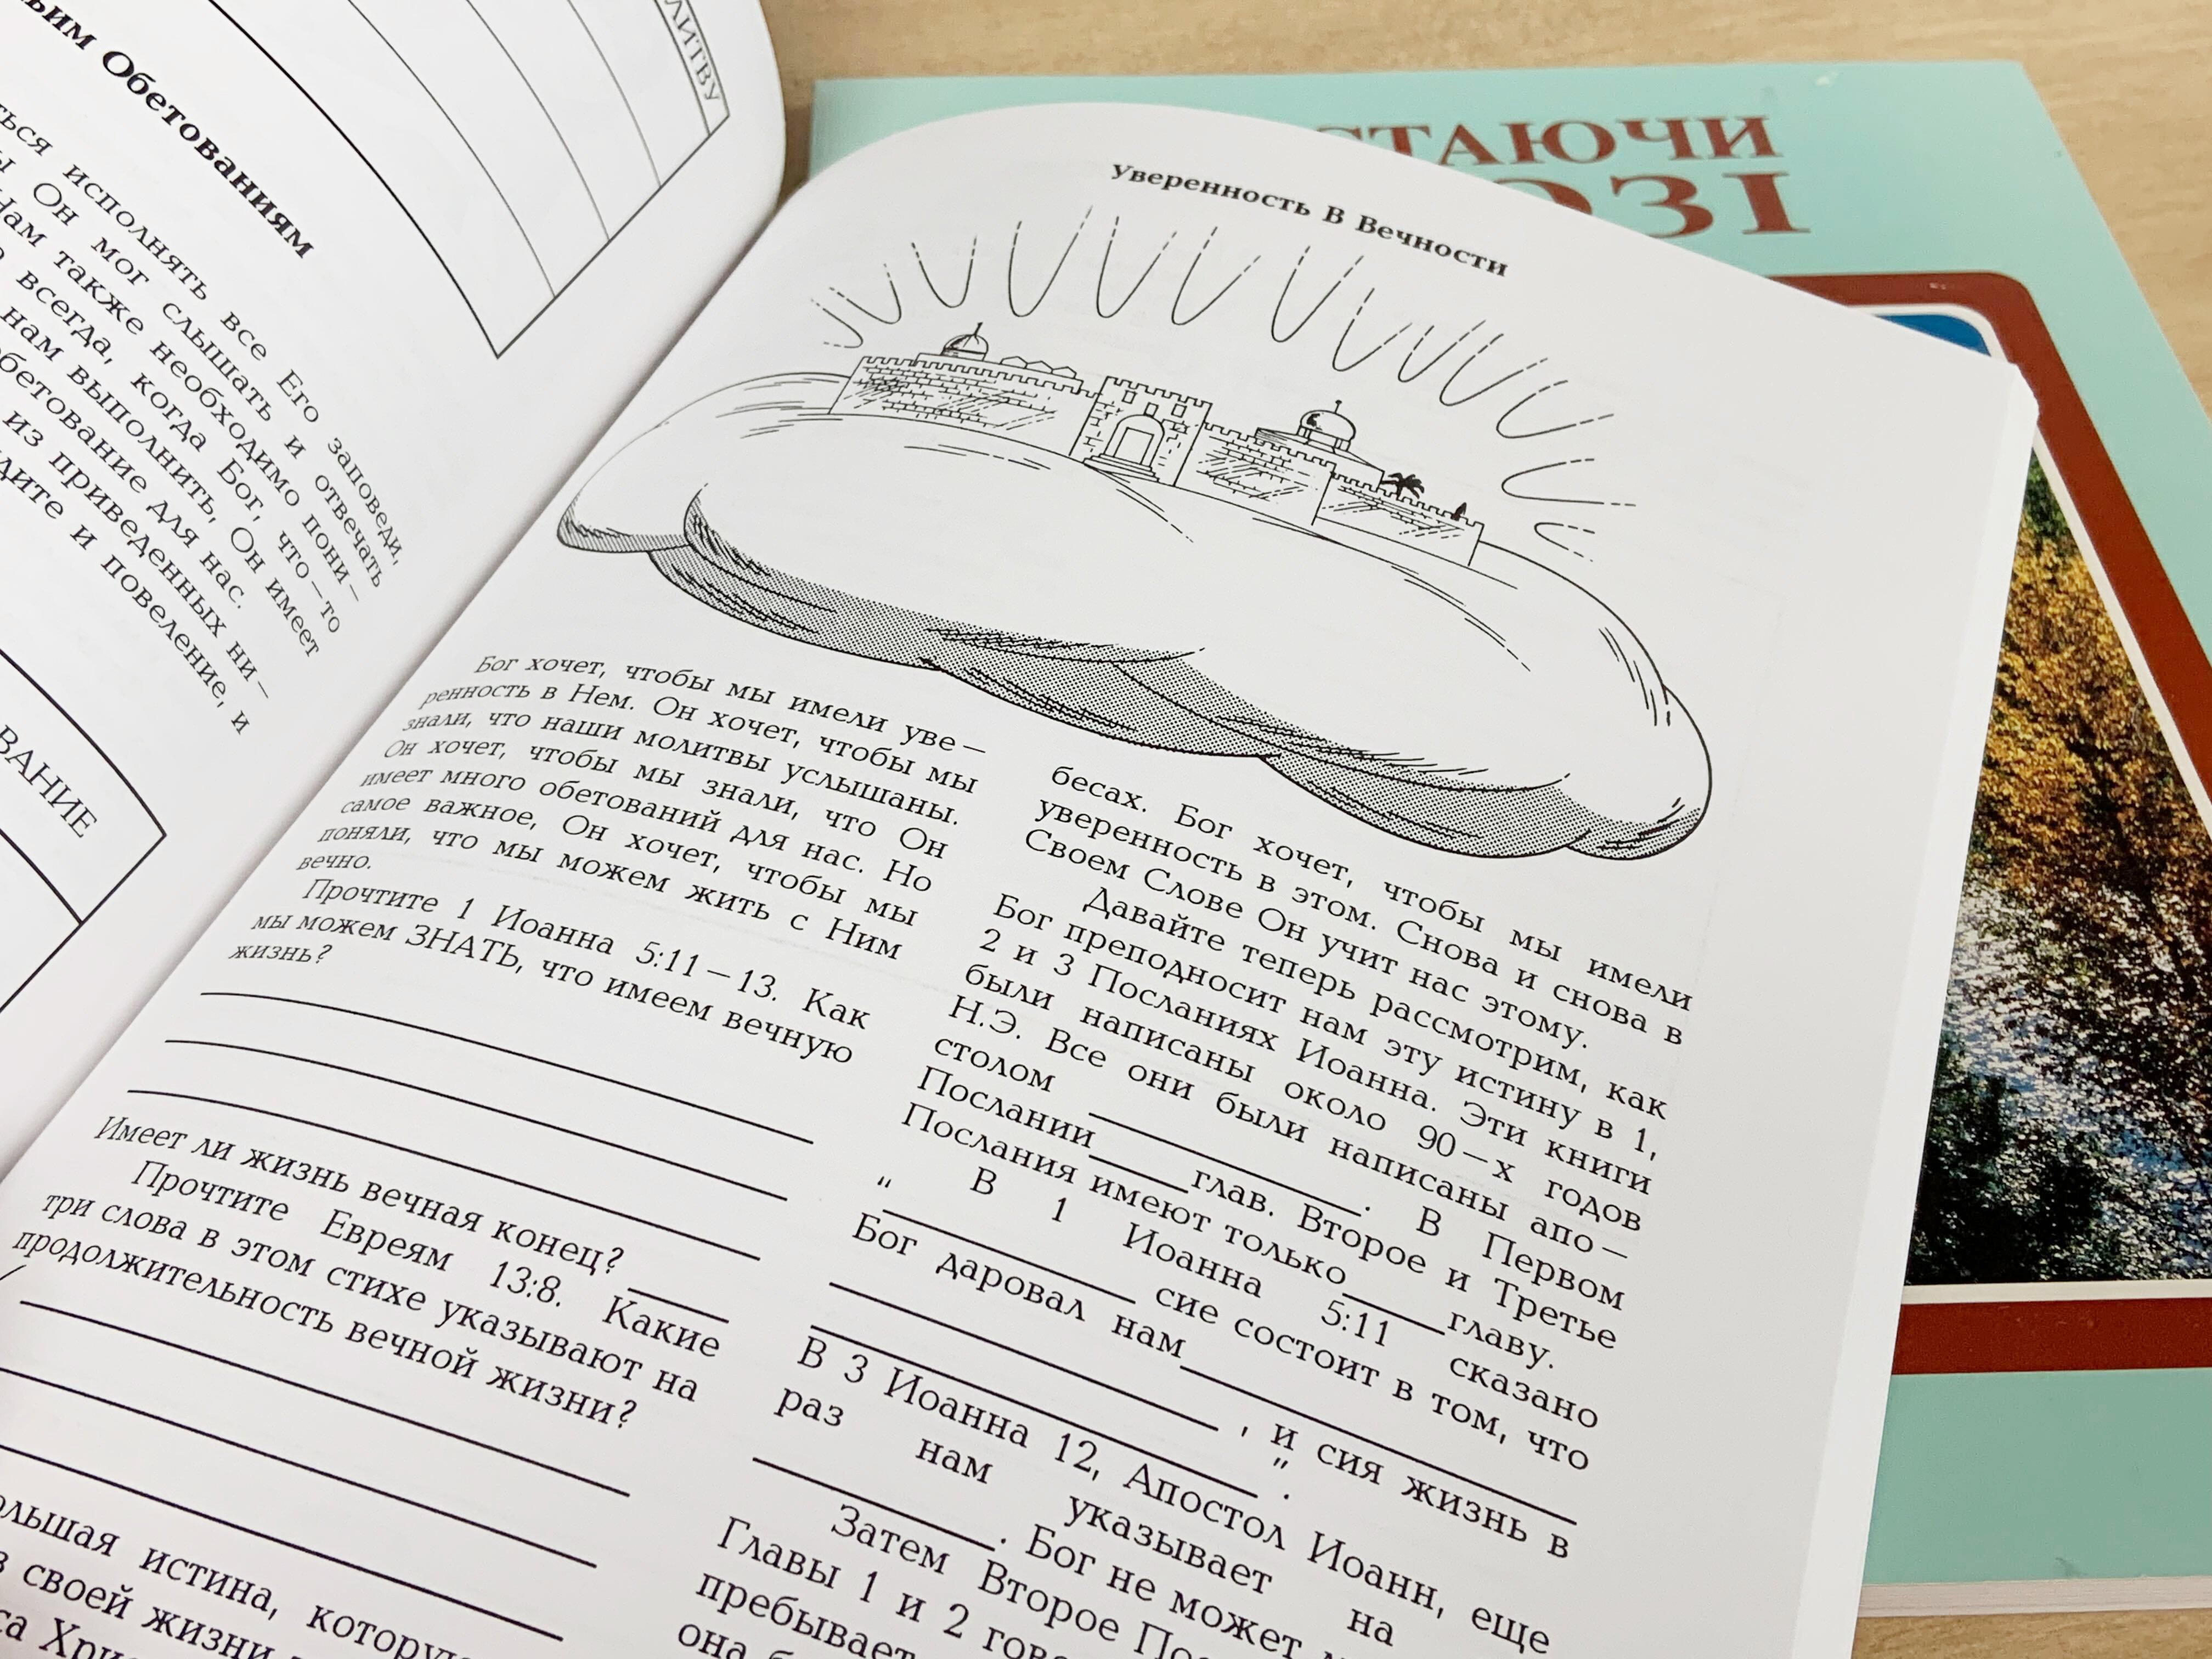 ЛИТВУ
Обетованиям
исполнять все Его заповеди,
Он мог слышать и отвечать
Нам также необходимо пони–
всегда, когда Бог, что–то
нам выполнить, Он имеет
для нас.
из приведенных ни–
и повеление, и
ВАНИЕ
Уверенность В Вечности
Бог хочет, чтобы мы имели уве–
ренность в Нем. Он хочет, чтобы мы
знали, что наши молитвы услышаны.
Он хочет, чтобы мы знали, что Он
имеет много обетований для нас. Но
самое важное, Он хочет, чтобы мы
поняли, что мы можем жить с Ним
вечно.
Прочтите 1 Иоанна 5:11–13. Как
мы можем ЗНАТЬ, что имеем вечную
жизнь?
Имеет ли жизнь вечная конец?
Прочтите Евреям 13:8. Какие
три слова в этом стихе указывают на
продолжительность вечной жизни?
истина,
своей жизни
бесах. Бог хочет, чтобы мы имели
уверенность в этом. Снова и снова в
Своем Слове Он учит нас этому.
Давайте теперь рассмотрим, как
Бог преподносит нам эту истину в 1,
2 и 3 Посланиях Иоанна. Эти книги
были написаны около 90–х годов
Н.Э. Все они были написаны апо–
столом ________. В Первом
Послании____глав. Второе и Третье
Послания имеют только____главу.
В 1 Иоанна 5:11 сказано
"________ сие состоит в том, что
Бог даровал нам________
________, и сия жизнь в
________".
В 3 Иоанна 12, Апостол Иоанн, еще
раз нам указывает на
________. Бог не может
Затем Второе
Главы 1 и 2
пребывает
она
СТАЮЧИ
ОЗІ